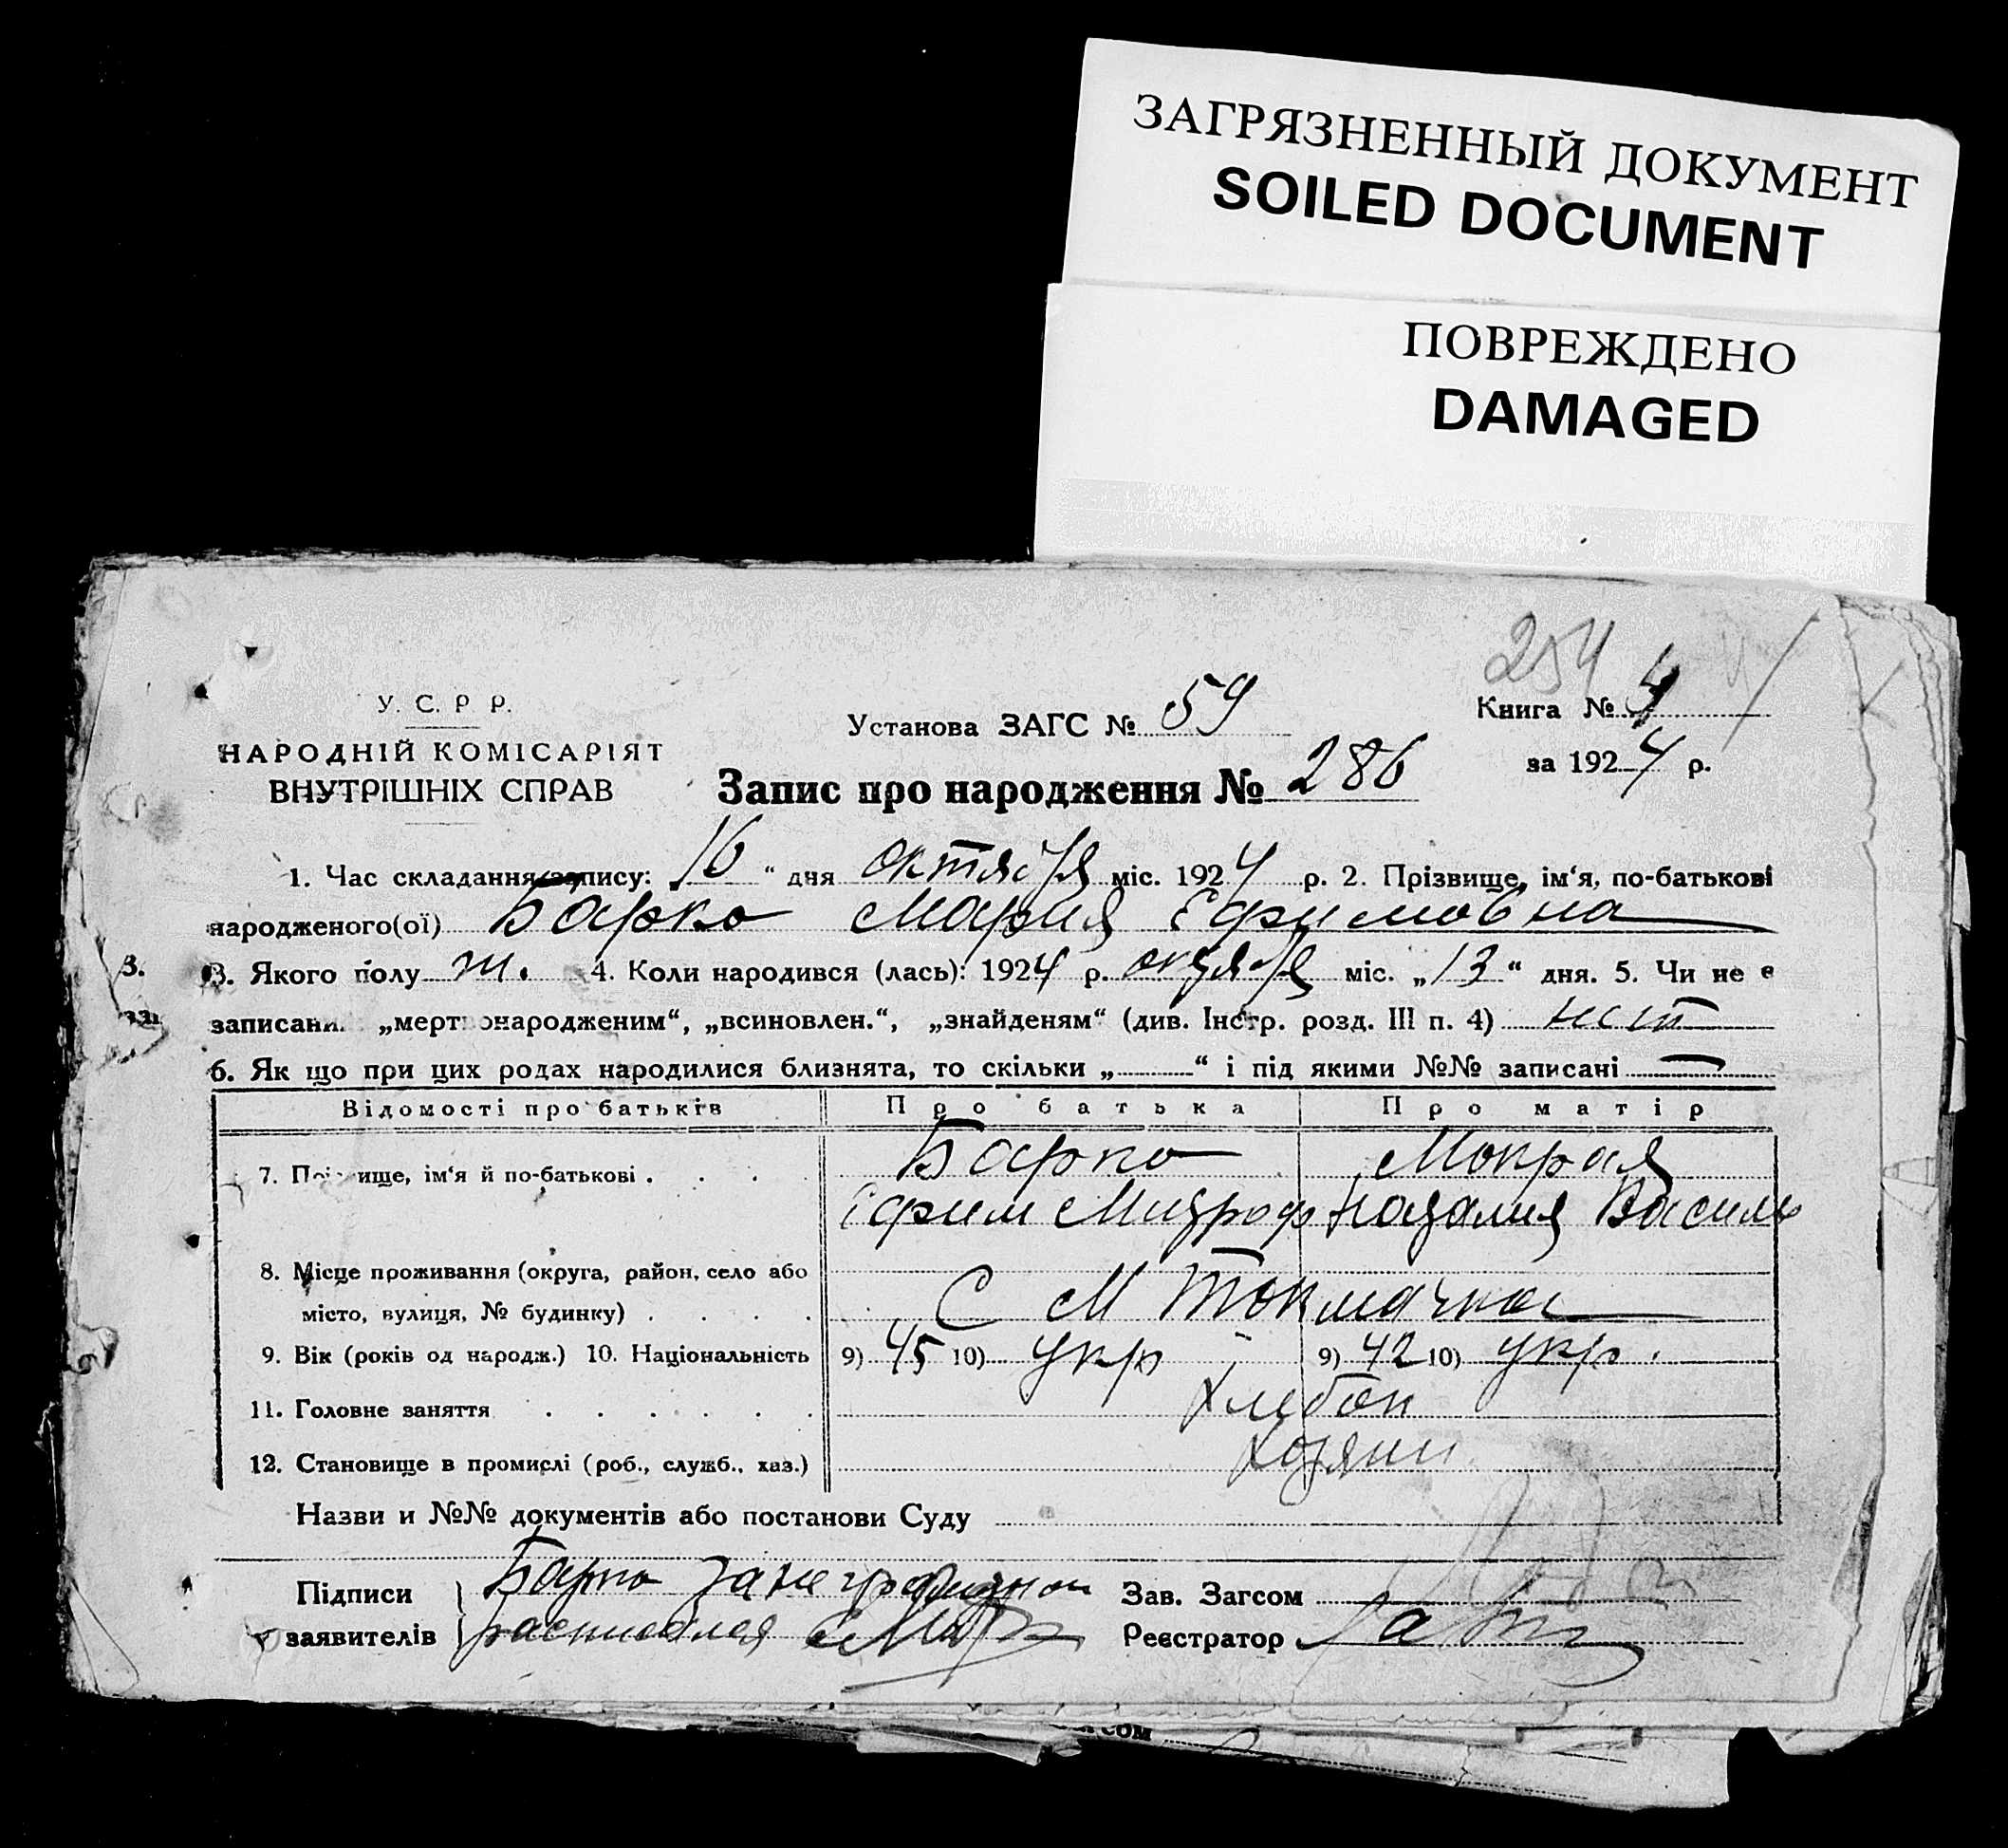 ЗАГРЯЗНЕННЫЙ ДОКУМЕНТ
SOILED DOCUMENT
ПОВРЕЖДЕНО
DAMAGED
254
У. С. Р Р.
НАРОДНІЙ КОМІСАРІЯТ
ВНУТРІШНІХ СПРАВ
Установа ЗАГС № 59
Книга № 4
за 1924 р.
Запис про народження № 286
1. Час складання запису: 16 “ дня октября міс. 1924 р. 2. Прізвище, ім‘я, по-батькові
народженого(ої) Барко Мария Ефимовна
3. Якого полу ж. 4. Коли народився (лась): 1924 р. октября міс. „13“ дня. 5. Чи не є
записани. „мертвонародженим“, „всиновлен.“, „знайденям“ (див. Інстр. розд. III п. 4) нет
6. Як що при цих родах народилися близнята, то скільки „ “ і під якими №№ записані —
Відомості про батьків Про батька Про матір
7. Прізвище, ім‘я й по-батькові . Барко Мокрая
Ефим Митроф Наталия Василь
8. Місце проживання (округа, район, село або
місто, вулиця, № будинку) . С М Токмачка
9. Вік (років од народж.) 10. Національність 9) 45 10) укр 9) 42 10) укр.
11. Головне заняття Хлебоп
12. Становище в промислі (роб., служб., хаз.) Хозяин
Назви и №№ документів або постанови Суду
Підписи Барко за неграмотной Зав. Загсом
заявителів расписалая Реєстратор